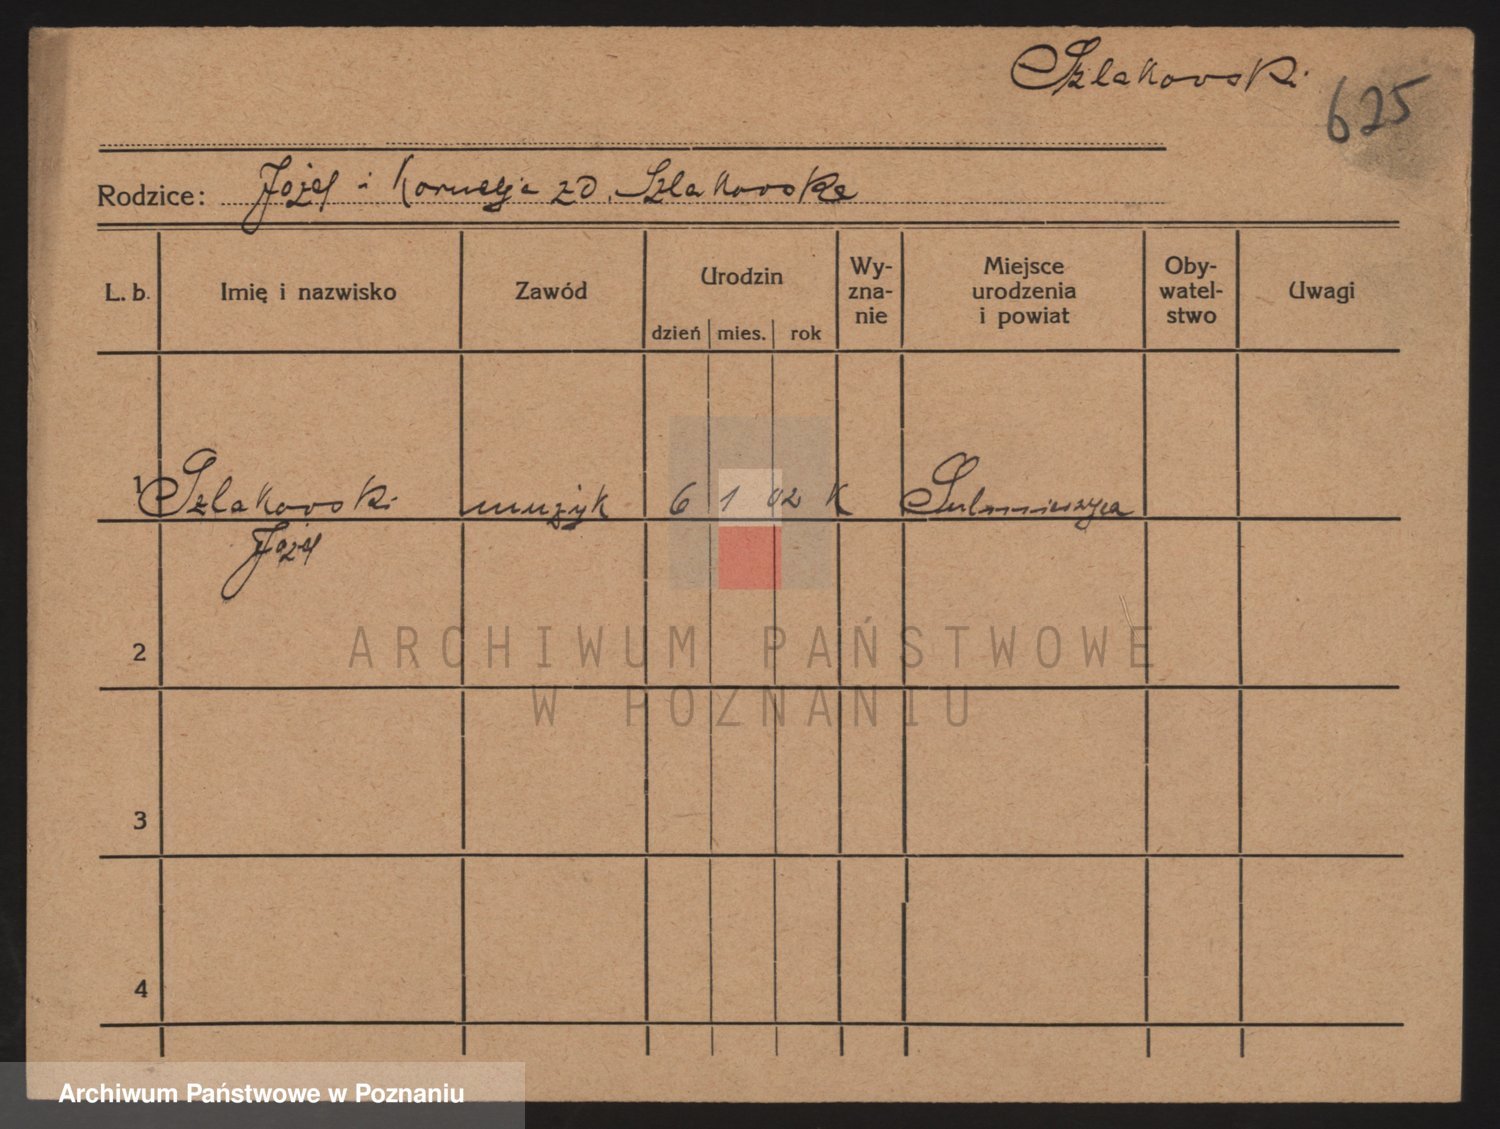 Szlakowski
625
Rodzice: Józef i Kornelja zd. Szlakowska
L. b. Imię i nazwisko Zawód Urodzin dzień mies. rok Wy-zna-nie Miejsce urodzenia i powiat Oby-watel-stwo Uwagi
1 Szlakowski muzyk 6 1 02 K Sulmierzyce
Józef
2
ARCHIWUM PAŃSTWOWE
W POZNANIU
3
4
Archiwum Państwowe w Poznaniu